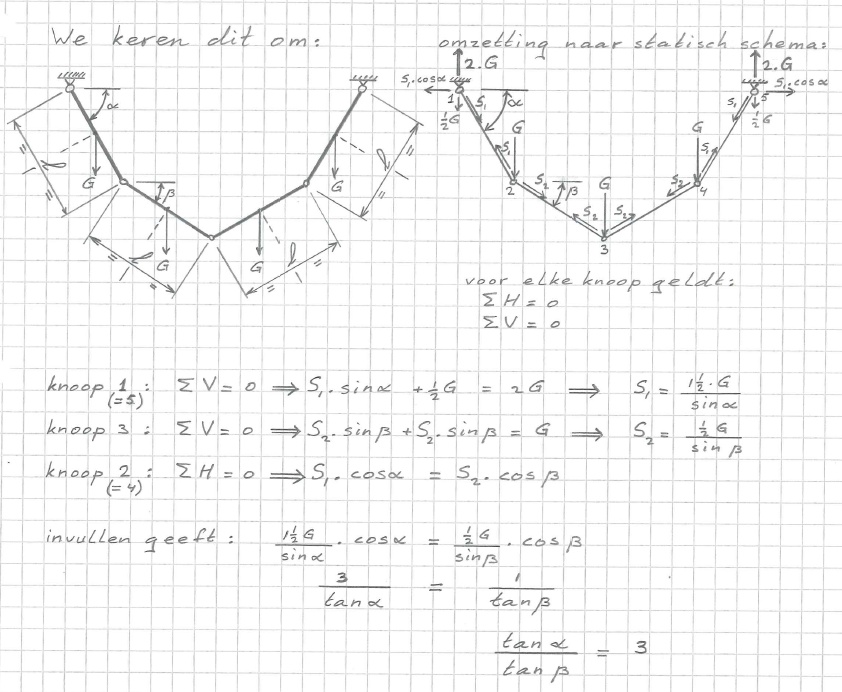 We keren dit om:
omzetting naar statisch schema:
α
G
l
β
G
l
G
l
G
l
2.G
S₁.cosα
1
S₁
α
½G
G
S₁
2
S₂
β
G
S₂
S₂
3
G
S₁
S₂
4
2.G
S₁.cosα
S₁
5
½G
voor elke knoop geldt:
ΣH = 0
ΣV = 0
knoop 1 (=5) : ΣV = 0 ⟹ S₁.sinα + ½G = 2G ⟹ S₁ = 1½.G / sinα
knoop 3 : ΣV = 0 ⟹ S₂.sinβ + S₂.sinβ = G ⟹ S₂ = ½G / sinβ
knoop 2 (=4) : ΣH = 0 ⟹ S₁.cosα = S₂.cosβ
invullen geeft : 1½G / sinα . cosα = ½G / sinβ . cosβ
3 / tanα = 1 / tanβ
tanα / tanβ = 3